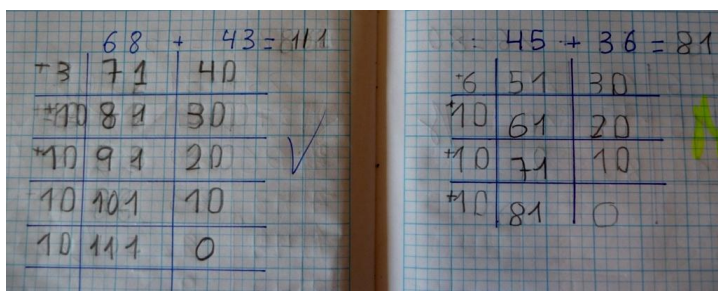 68 + 43 = 111
+3 71 40
+10 81 30
+10 91 20
10 101 10
10 111 0
45 + 36 = 81
+6 51 30
+10 61 20
+10 71 10
+10 81 0